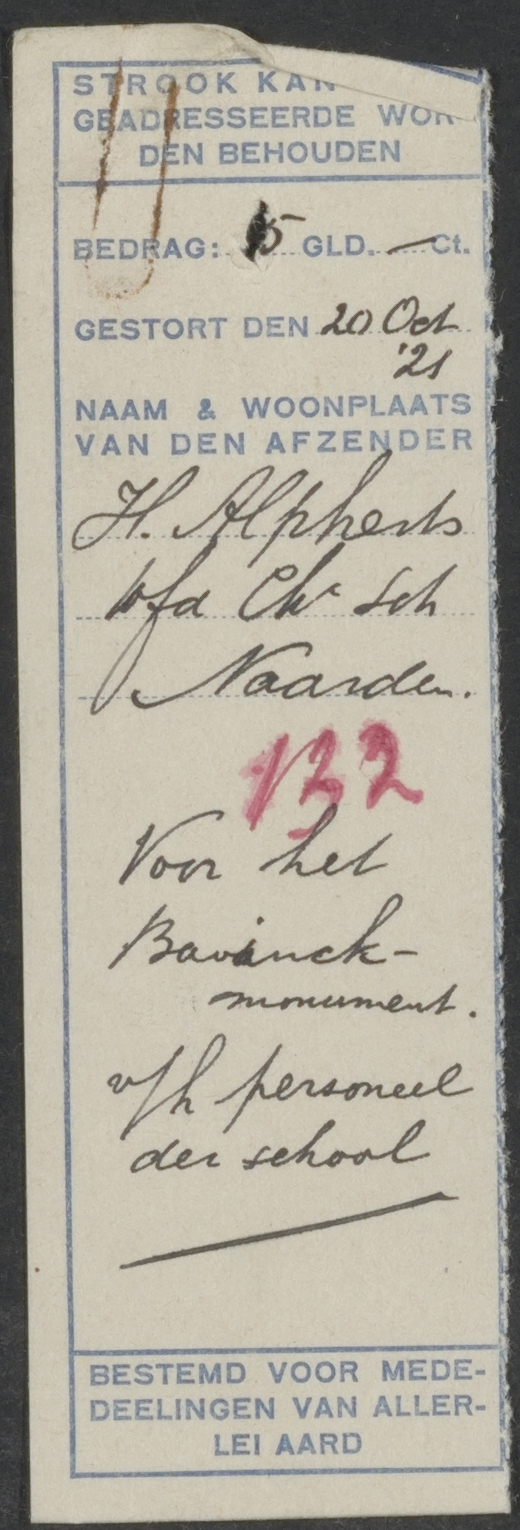 STROOK KAN
GEADRESSEERDE WOR
DEN BEHOUDEN
BEDRAG: 15 GLD. — Ct.
GESTORT DEN 20 Oct
'21
NAAM & WOONPLAATS
VAN DEN AFZENDER
H. Alpherts
hfd Chr sch
Naarden.
132
Voor het
Bavinck-
monument.
v/h personeel
der school
BESTEMD VOOR MEDE-
DEELINGEN VAN ALLER-
LEI AARD